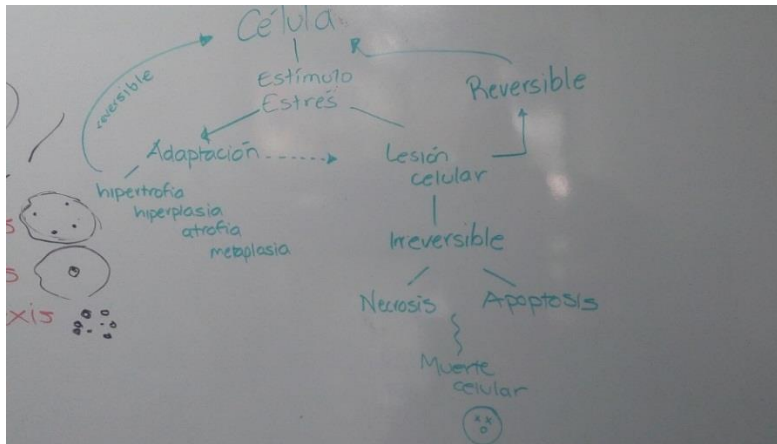 Célula
R
Estímulo
Estrés
reversible
Reversible
Adaptación
Lesión
celular
hipertrofia
hiperplasia
atrofia
metaplasia
Irreversible
Necrosis
Apoptosis
Muerte
celular
s
s
xis